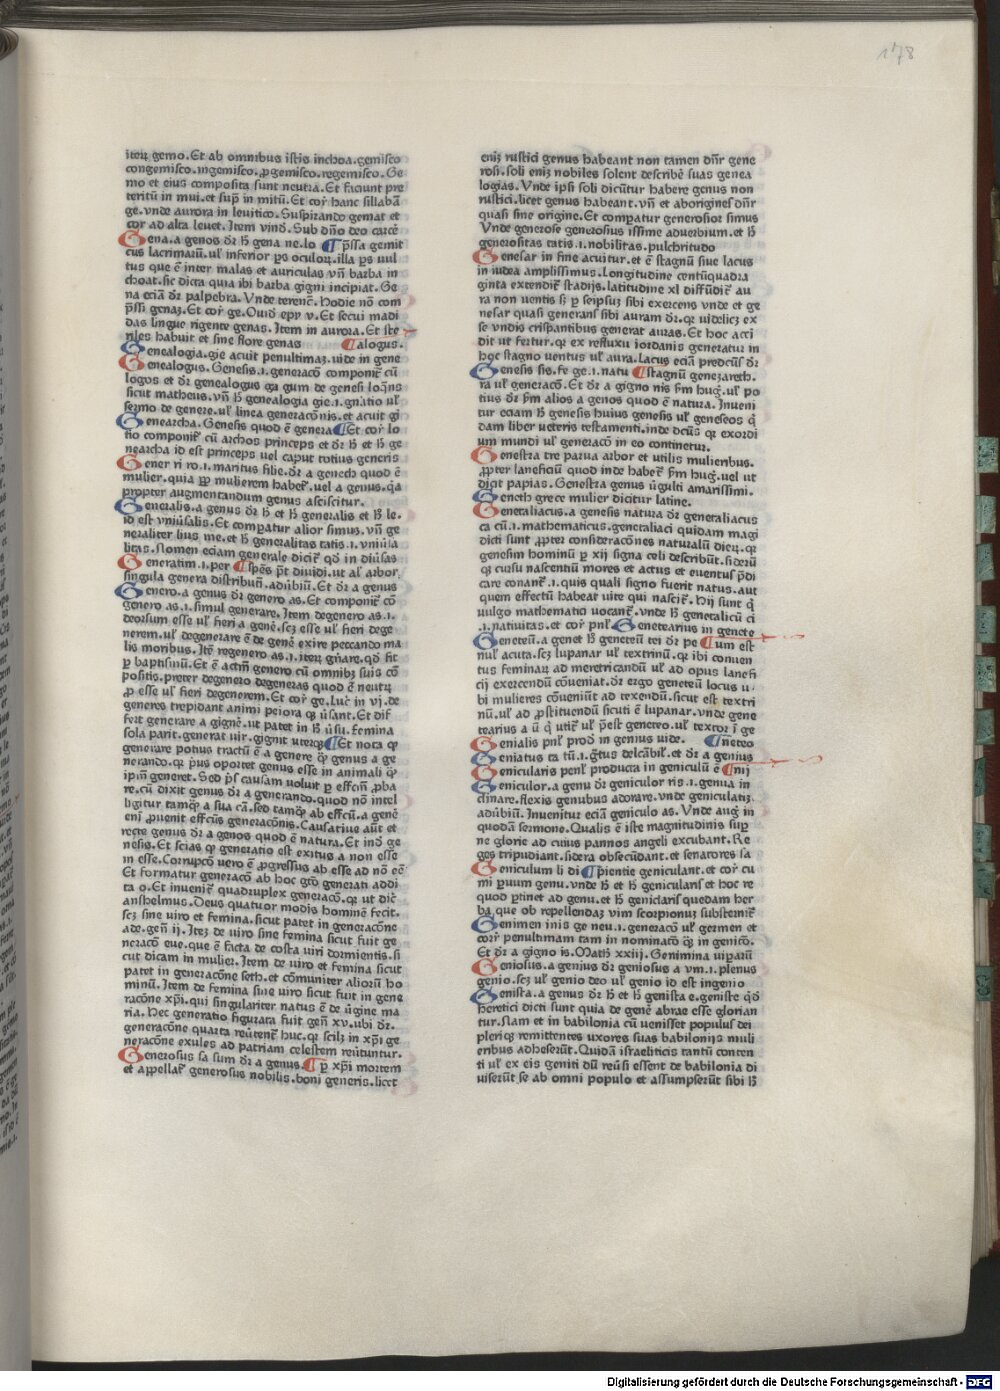 178
iterꝝ gemo. Et ab omnibus istis inchoa. gemisco
congemisco. ingemisco. ꝓgemisco. regemisco. Ge
mo et eius composita sunt neutra. Et faciunt pre
teritū in mui. et sup̄ in mitū. Et cor̄ hanc sillabā
ge. vnde aurora in leuitico. Suspirando gemat et
cor ad alta leuet. Item vind. Sub dn̄o deo carcē
Gena. a genos dr̄ h̄ gena ne. lo ¶ p̄ssa gemit
cus lacrimarū. ul̄ inferior ꝑs oculoꝝ. illa ꝑs uul
tus que ē inter malas et auriculas vn̄ barba in
choat. sic dicta quia ibi barba gigni incipiat. Ge
na eciā dr̄ palpebra. Vnde terenc̄. Hodie nō com
p̄ssi genas. Et cor̄ ge. Ouid epy v. Et secui madi
das lingue rigente genas. Item in aurora. Et ste
riles habuit et sine flore genas ¶ alogus.
Genealogia. gie acuit penultimaz. uide in gene
Genealogus. Genesis. i. generacō componit᷑ cū
logos et dr̄ genealogus ga gum de genesi loq̄ns
sicut matheus. vn̄ h̄ genealogia gie. i. gn̄atio ul̄
sermo de genere. ul̄ linea generacōnis. et acuit gi
Genearcha. Genesis quod ē genera ¶ Et cor̄ lo
tio componit᷑ cū archos princeps et dr̄ h̄ et h̄ ge
nearcha id est princeps uel caput totius generis
Gener ri ro. i. maritus filie. dr̄ a genech quod ē
mulier. quia ꝑ mulierem habet᷑. uel a genus. q̄a
propter augmentandum genus asciscitur.
Generalis. a genus dr̄ h̄ et h̄ generalis et h̄ le.
id est vniu᷑salis. Et compatur alior simus. vn̄ ge
neraliter lius me. et h̄ generalitas tatis. i. vniu᷑sa
litas. Nomen eciam generale dicit᷑ qd̄ in diu᷑sas
Generatim. i. per ¶ sp̄es p̄t diuidi. ut al̄ arbor.
singula genera distribun̄. adu᷑biū. Et dr̄ a genus
Genero. a genus dr̄ genero as. Et componit᷑ cō
genero as. i. simul generare. Item degenero as. i.
deorsum esse ul̄ fieri a genē. scz esse ul̄ fieri dege
nerem. ul̄ degenerare ē de genē exire peccando ma
lis moribus. Itē regenero as. i. iterꝝ gn̄are. qd̄ fit
ꝑ baptisimū. Et ē actiū genero cū omnibꝫ suis cō
positis. preter degenero degeneras quod ē neutrꝝ
ꝓ esse ul̄ fieri degenerem. Et cor̄ ge. Luc̄ in vj. de
generes trepidant animi peiora qꝫ u᷑sant. Et dif
fert generare a gignē. ut patet in h̄ u᷑su. Femina
sola parit. generat uir. gignit uterqꝫ ¶ Et nota qꝫ
generare potius tractū ē a genere qꝫ genus a ge
nerando. qꝛ p̄us oportet genus esse in animali qꝫ
ip̄m generet. Sed p̄s̄ causam voluit ꝑ effcm̄ ꝓba
re. cū dixit genus dr̄ a generando. quod nō intel
ligitur tamqꝫ a sua cā. sed tamqꝫ ab effcū. a genē
eni ꝓuenit effcūs generacōnis. Causatiue aūt et
recte genus dr̄ a genos quod ē natura. Et ind̄ ge
nesis. Et scias qꝫ generatio est exitus a non esse
in esse. Corrupcō uero ē ꝓgressus ab esse ad nō eē
Et formatur generacō ab hoc gt̄o generati addi
ta o. Et inuenit᷑ quadruplex generacō. qꝛ ut dic̄
anshelmus. Deus quatuor modis hominē fecit.
scz sine uiro et femina. sicut patet in generacōne
ade. gen̄ ij. Itez de uiro sine femina sicut fuit ge
neracō eue. que ē facta de costa uiri dormientis. si
cut dicam in mulier. Item de uiro et femina sicut
patet in generacōne seth. et cōmuniter aliorū ho
minū. Item de femina sine uiro sicut fuit in gene
racōne xp̄i. qui singulariter natus ē de u᷑gine ma
ria. Hec generatio figurata fuit gen̄ xv. ubi dr̄.
generacōne quarta reu᷑tent᷑ huc. qꝛ scilꝫ in xp̄i ge
neracōne exules ad patriam celestem reu᷑tuntur.
Generosus sa sum dr̄ a genus. ¶ ꝑ xp̄i mortem
et appellat᷑ generosus nobilis. boni generis. licet
eniz rustici genus habeant non tamen dn̄r gene
rosi. soli eniz nobiles solent describē suas genea
logias. Vnde ipsi soli dicūtur habere genus non
rustici. licet genus habeant. vn̄ et aborigines dn̄r
quasi sine origine. Et compatur generosior simus
Vnde generose generosius issime aduerbium. et h̄
generositas tatis. i. nobilitas. pulchritudo
Genesar in fine acuitur. et ē stagnū siue lacus
in iudea amplissimus. Longitudine centūquadra
ginta extendit᷑ stadijs. latitudine xl diffūdit᷑ au
ra non uentis s; ꝑ seipsuz sibi exercens vnde et ge
nesar quasi generans sibi auram dr̄. qꝛ uidelicz ex
se vndis crispantibus generat auras. Et hoc acci
dit ut fertur. qꝛ ex refluxu iordanis generatur in
hoc stagno uentus ul̄ aura. Lacus eciā predcūs dr̄
Genesis sis. se ge. i. natu ¶ stagnū genezareth.
ra ul̄ generacō. Et dr̄ a gigno nis s̄m hug᷑. ul̄ po
tius dr̄ s̄m alios a genos quod ē natura. Inueni
tur eciam h̄ genesis huius genesis ul̄ geneseos q̄
dam liber ueteris testamenti. inde dcūs qꝛ exordi
um mundi ul̄ generacō in eo continetur.
Genestra tre parua arbor et utilis mulieribus.
ꝓpter laneficiū quod inde habet᷑ s̄m hug᷑. uel ut
dic̄t papias. Genestra genus u᷑gulti amarissimi.
Geneth grece mulier dicitur latine.
Genetaliacus. a genesis natura dr̄ genetaliacus
ca cū. i. mathematicus. genetaliaci quidam magi
dicti sunt ꝓpter consideracōnes naturaliū dierꝝ. qꝛ
genesim hominū ꝑ xij signa celi describūt. siderū
qꝫ cursu nascentiū mores et actus et euentus p̄di
care conant᷑. i. quis quali signo fuerit natus. aut
quem effectū habeat uite qui nascit᷑. Hij sunt q̄
uulgo mathematici vocant᷑. vnde h̄ genetalicū ci
. i. natiuitas. et cor̄ pnl̄ Genetearius in genete
Geneteū. a genet h̄ geneteū tei dr̄ pe ¶ um est
nul̄ acuta. scz lupanar ul̄ textrinū. qꝛ ibi conuen
tus feminaꝝ ad meretricandū ul̄ ad opus lanefi
cij exercendū cōueniat. dr̄ ergo geneteū locus u
bi mulieres cōueniūt ad texendū. sicut est textri
nū. ul̄ ad ꝓstituendū sicuti ē lupanar. vnde gene
tearius a ū q̄ utit᷑ ul̄ p̄est geneteo. ul̄ textor ī ge
Genialis pnl̄ prod̄ in genius uide. ¶ neteo
Geniatus ta tū. i. gratus delcābil᷑. et dr̄ a genius
Genicularis penl̄ producta in geniculū ē ¶ nij
Geniculor. a genu dr̄ geniculor ris. i. genua in
clinare. flexis genubus adorare. vnde geniculatiz.
adu᷑biū. Inuenitur eciā geniculo as. Vnde aug᷑ in
quodā sermone. Qualis ē iste magnitudinis sup̄
ne glorie ad cuius pannos angeli excubant. Re
ges tripudiant. sidera obsecūdant. et senatores sa
Geniculum li di ¶ pientie geniculant. et cor̄ cu
mi ꝑuum genu. vnde h̄ et h̄ genicularis et hoc re
quod ꝑtinet ad genu. et h̄ geniclaris quedam her
ba que ob repellendaz vim scorpionuz substernit᷑
Genimen inis ge neu. i. generacō ul̄ germen et
corr̄ penultimam tam in nominacō qꝫ in geniēo.
Et dr̄ a gigno is. Math̄ xxiij. Genimina uiparū
Geniosus. a genius dr̄ geniosus a vm. i. plenus
genio. scz ul̄ genio deo ul̄ genio id est ingenio
Genista. a genus dr̄ h̄ et h̄ genista e. geniste qd̄
heretici dicti sunt quia de genē abrae esse glorian
tur. Nam et in babilonia cū uenisset populus dei
pleriqꝫ remittentes uxores suas babilonijs muli
eribus adheserūt. Quidā israeliticis tantū conten
ti ul̄ ex eis geniti dū reu᷑si essent de babilonia di
uiserūt se ab omni populo et assumpserūt sibi h̄
Digitalisierung gefördert durch die Deutsche Forschungsgemeinschaft - DFG